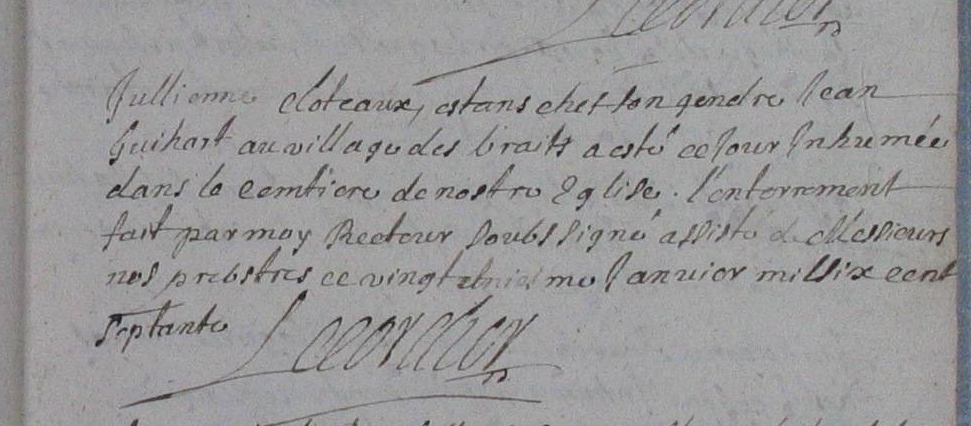 Jullienne cloteaux, estans ches son gendre Jean
Guihart au village des braits a esté ce Jour Inhumée
dans le cemtiere de nostre Eglise. l'enterrement
fait par moy Recteur soubssigné assisté de Messieurs
nos prebstres ce vingt me Janvier mil six cent
septante